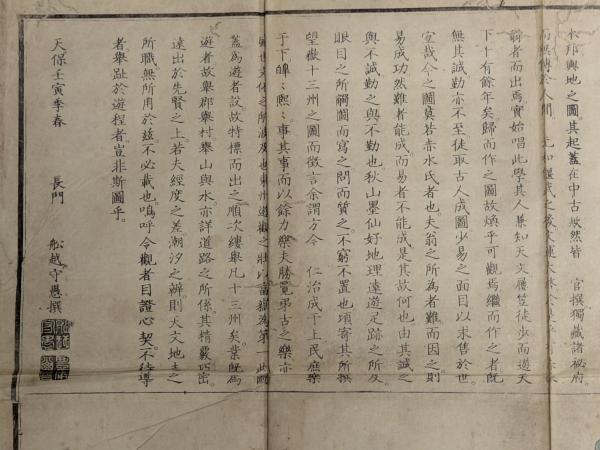 本邦輿地之圖其起蓋在中古歟然皆　官撰獨藏諸祕府
翁者而出焉實始唱此學其人兼知天文屢笠徒步而遊天
下十有餘年矣歸而作之圖故煥乎可觀焉繼而作之者旣
無其誠勤亦不至徒取古人成圖少易之面目以求售於世
宜哉今之圖莫若赤水氏者也夫翁之所為者難而因之則
易成功然難者能成而易者不能成是其故何也由其誠之
與不誠勤之與不勤也秋山墨仙好地理遠遊足跡之所及
眼目之所觸圖而寫之問而質之不窮不置也頃寄其所撰
望嶽十三州之圖而徵言余謂方今　仁治成于上民庶樂
于下皞〻熙〻事其事而以餘力樂夫勝覽弟古之樂亦
遊觀之壯以富嶽為第一此圖
蓋為遊者設故特標而出之順次縷舉凡十三州矣業旣為
遊者故舉郡舉村舉山與水亦詳道路之所係其精覈巧密
遠出於先賢之上若夫經度之差潮汐之辨則天文地志之
所職無所用於茲不必載也嗚呼令觀者目證心契不待導
者舉趾於遊程者豈非斯圖乎
天保壬寅季春　長門　船越守愚撰